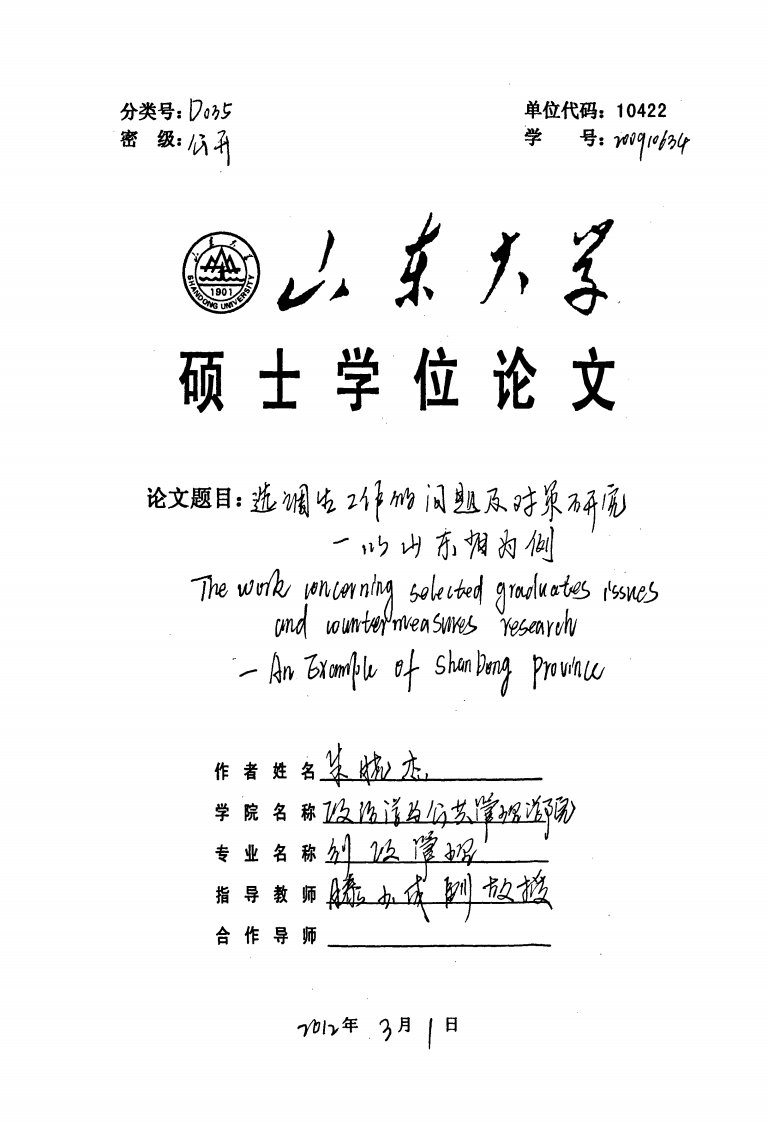 分类号:D035 单位代码:10422
密 级:公开 学 号:200910634
山东大学
SHANDONG UNIVERSITY
1901
硕士学位论文
论文题目:选调生工作的问题及对策研究
—以山东省为例
The work concerning selected graduates issues
and countermeasures research
— An Example of ShanDong province
作者姓名 朱晓杰
学院名称 政治学与公共管理学院
专业名称 行政管理
指导教师 滕 成 副教授
合作导师
2012年 3月 1日